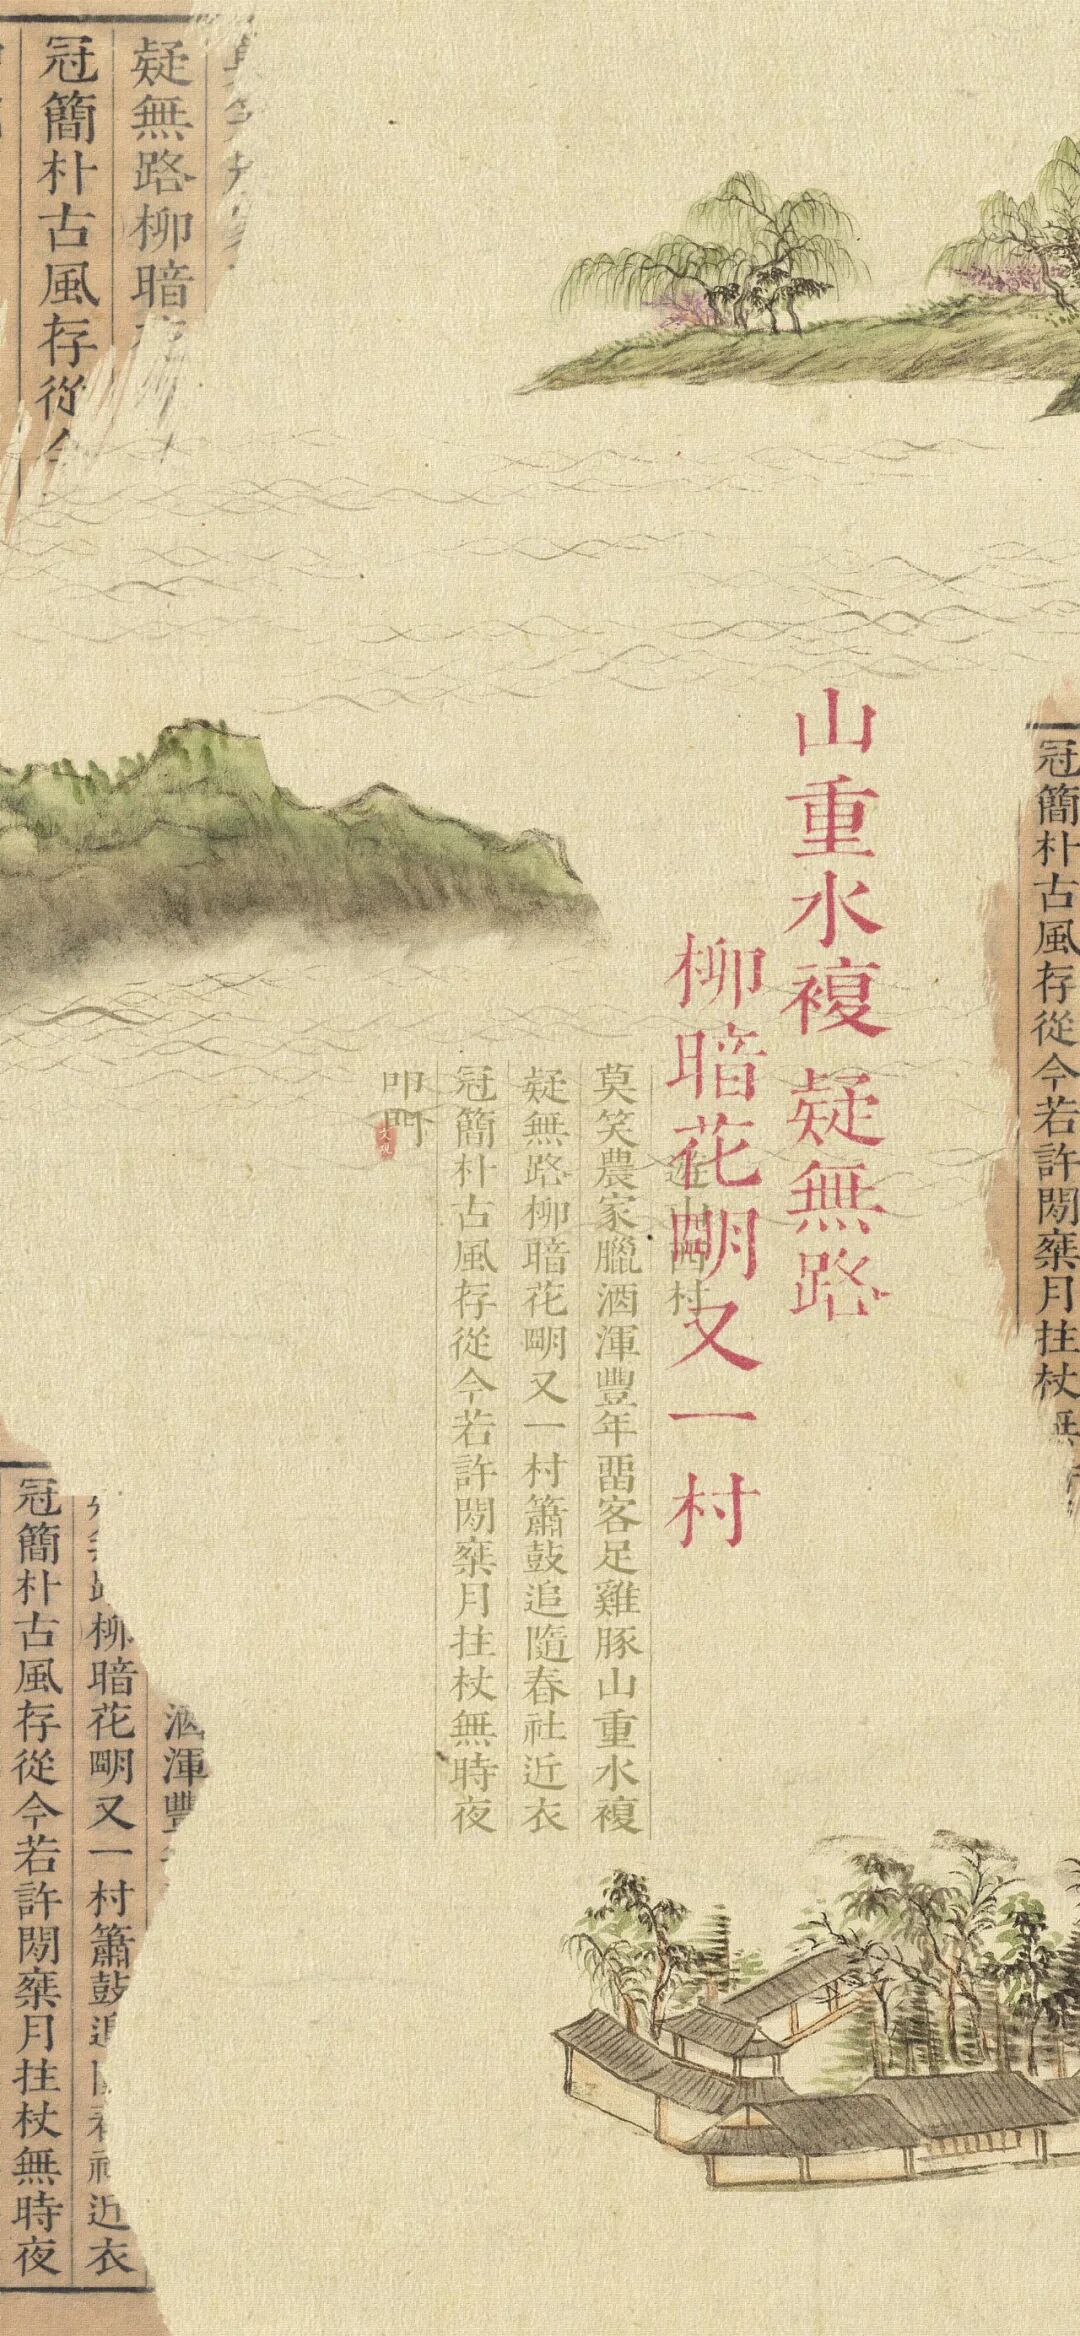 山重水複疑無路
柳暗花朙又一村
遊山西村
莫笑農家臘酒渾豐年畱客足雞豚山重水複
疑無路柳暗花朙又一村簫鼓追隨春社近衣
冠簡朴古風存從今若許閒椉月拄杖無時夜
叩門
疑無路柳暗
冠簡朴古風存從
冠簡朴古風存從今若許閒椉月拄杖無
酒渾豐
路柳暗花朙又一村簫鼓追隨春社近衣
冠簡朴古風存從今若許閒椉月拄杖無時夜